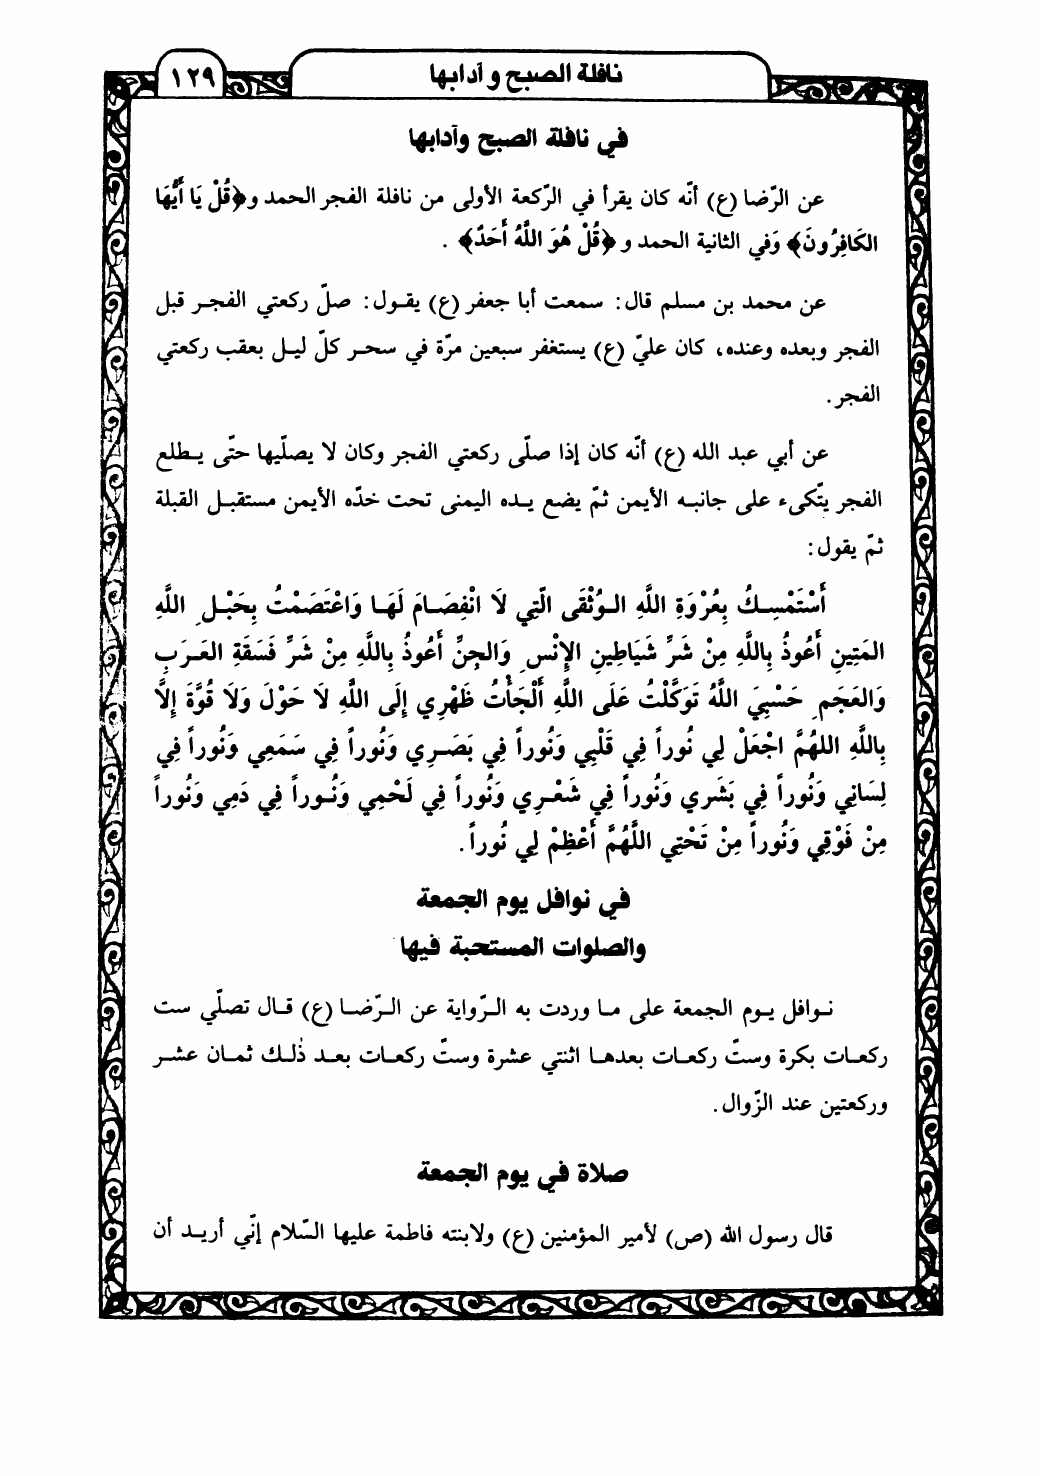 نافلة الصبح و آدابها
١٢٩
في نافلة الصبح وآدابها
عن الرّضا (ع) أنّه كان يقرأ في الرّكعة الأولى من نافلة الفجر الحمد و﴿قُلْ يَا أَيُّهَا
الكَافِرُونَ﴾ وَفي الثانية الحمد و ﴿قُلْ هُوَ اللَّهُ أَحَدٌ﴾ .
عن محمد بن مسلم قال: سمعت أبا جعفر (ع) يقـول: صلّ ركعتي الفجـر قبل
الفجر وبعده وعنده، كان عليّ (ع) يستغفر سبعين مرّة في سحـر كلّ ليـل بعقب ركعتي
الفجر.
عن أبي عبد الله (ع) أنّه كان إذا صلّى ركعتي الفجر وكان لا يصلّيها حتّى يـطلع
الفجر يتّكىء على جانبـه الأيمن ثمّ يضع يـده اليمنى تحت خدّه الأيمن مستقبـل القبلة
ثمّ يقول:
أَسْتَمْسِـكُ بِعُرْوَةِ اللَّهِ الـوُثْقَى الَّتِي لَا انْفِصَـامَ لَهَـا وَاعْتَصَمْتُ بِحَبْـلِ اللَّهِ
المَتِينِ أَعُوذُ بِاللَّهِ مِنْ شَرِّ شَيَاطِينِ الإِنْسِ وَالجِنِّ أَعُوذُ بِاللَّهِ مِنْ شَرِّ فَسَقَةِ العَـرَبِ
وَالعَجَمِ حَسْبِيَ اللَّهُ تَوَكَّلْتُ عَلَى اللَّهِ أَلْجَأْتُ ظَهْرِي إِلَى اللَّهِ لَا حَوْلَ وَلَا قُوَّةَ إِلَّا
بِاللَّهِ اللهُمَّ اجْعَلْ لِي نُوراً فِي قَلْبِي وَنُوراً فِي بَصَـرِي وَنُوراً فِي سَمَعِي وَنُوراً فِي
لِسَانِي وَنُوراً فِي بَشَرِي وَنُوراً فِي شَعْـرِي وَنُوراً فِي لَحْمِي وَنُـوراً فِي دَمِي وَنُوراً
مِنْ فَوْقِي وَنُوراً مِنْ تَحْتِي اللَّهُمَّ أَعْظِمْ لِي نُوراً.
في نوافل يوم الجمعة
والصلوات المستحبة فيها
نـوافل يـوم الجمعة على مـا وردت به الـرّواية عن الـرّضـا (ع) قـال تصلّي ست
ركعـات بكرة وستّ ركعـات بعدهـا اثنتي عشرة وستّ ركعـات بعـد ذٰلـك ثمـان عشـر
وركعتين عند الزّوال.
صلاة في يوم الجمعة
قال رسول الله (ص) لأمير المؤمنين (ع) ولابنته فاطمة عليها السّلام إنّي أريـد أن